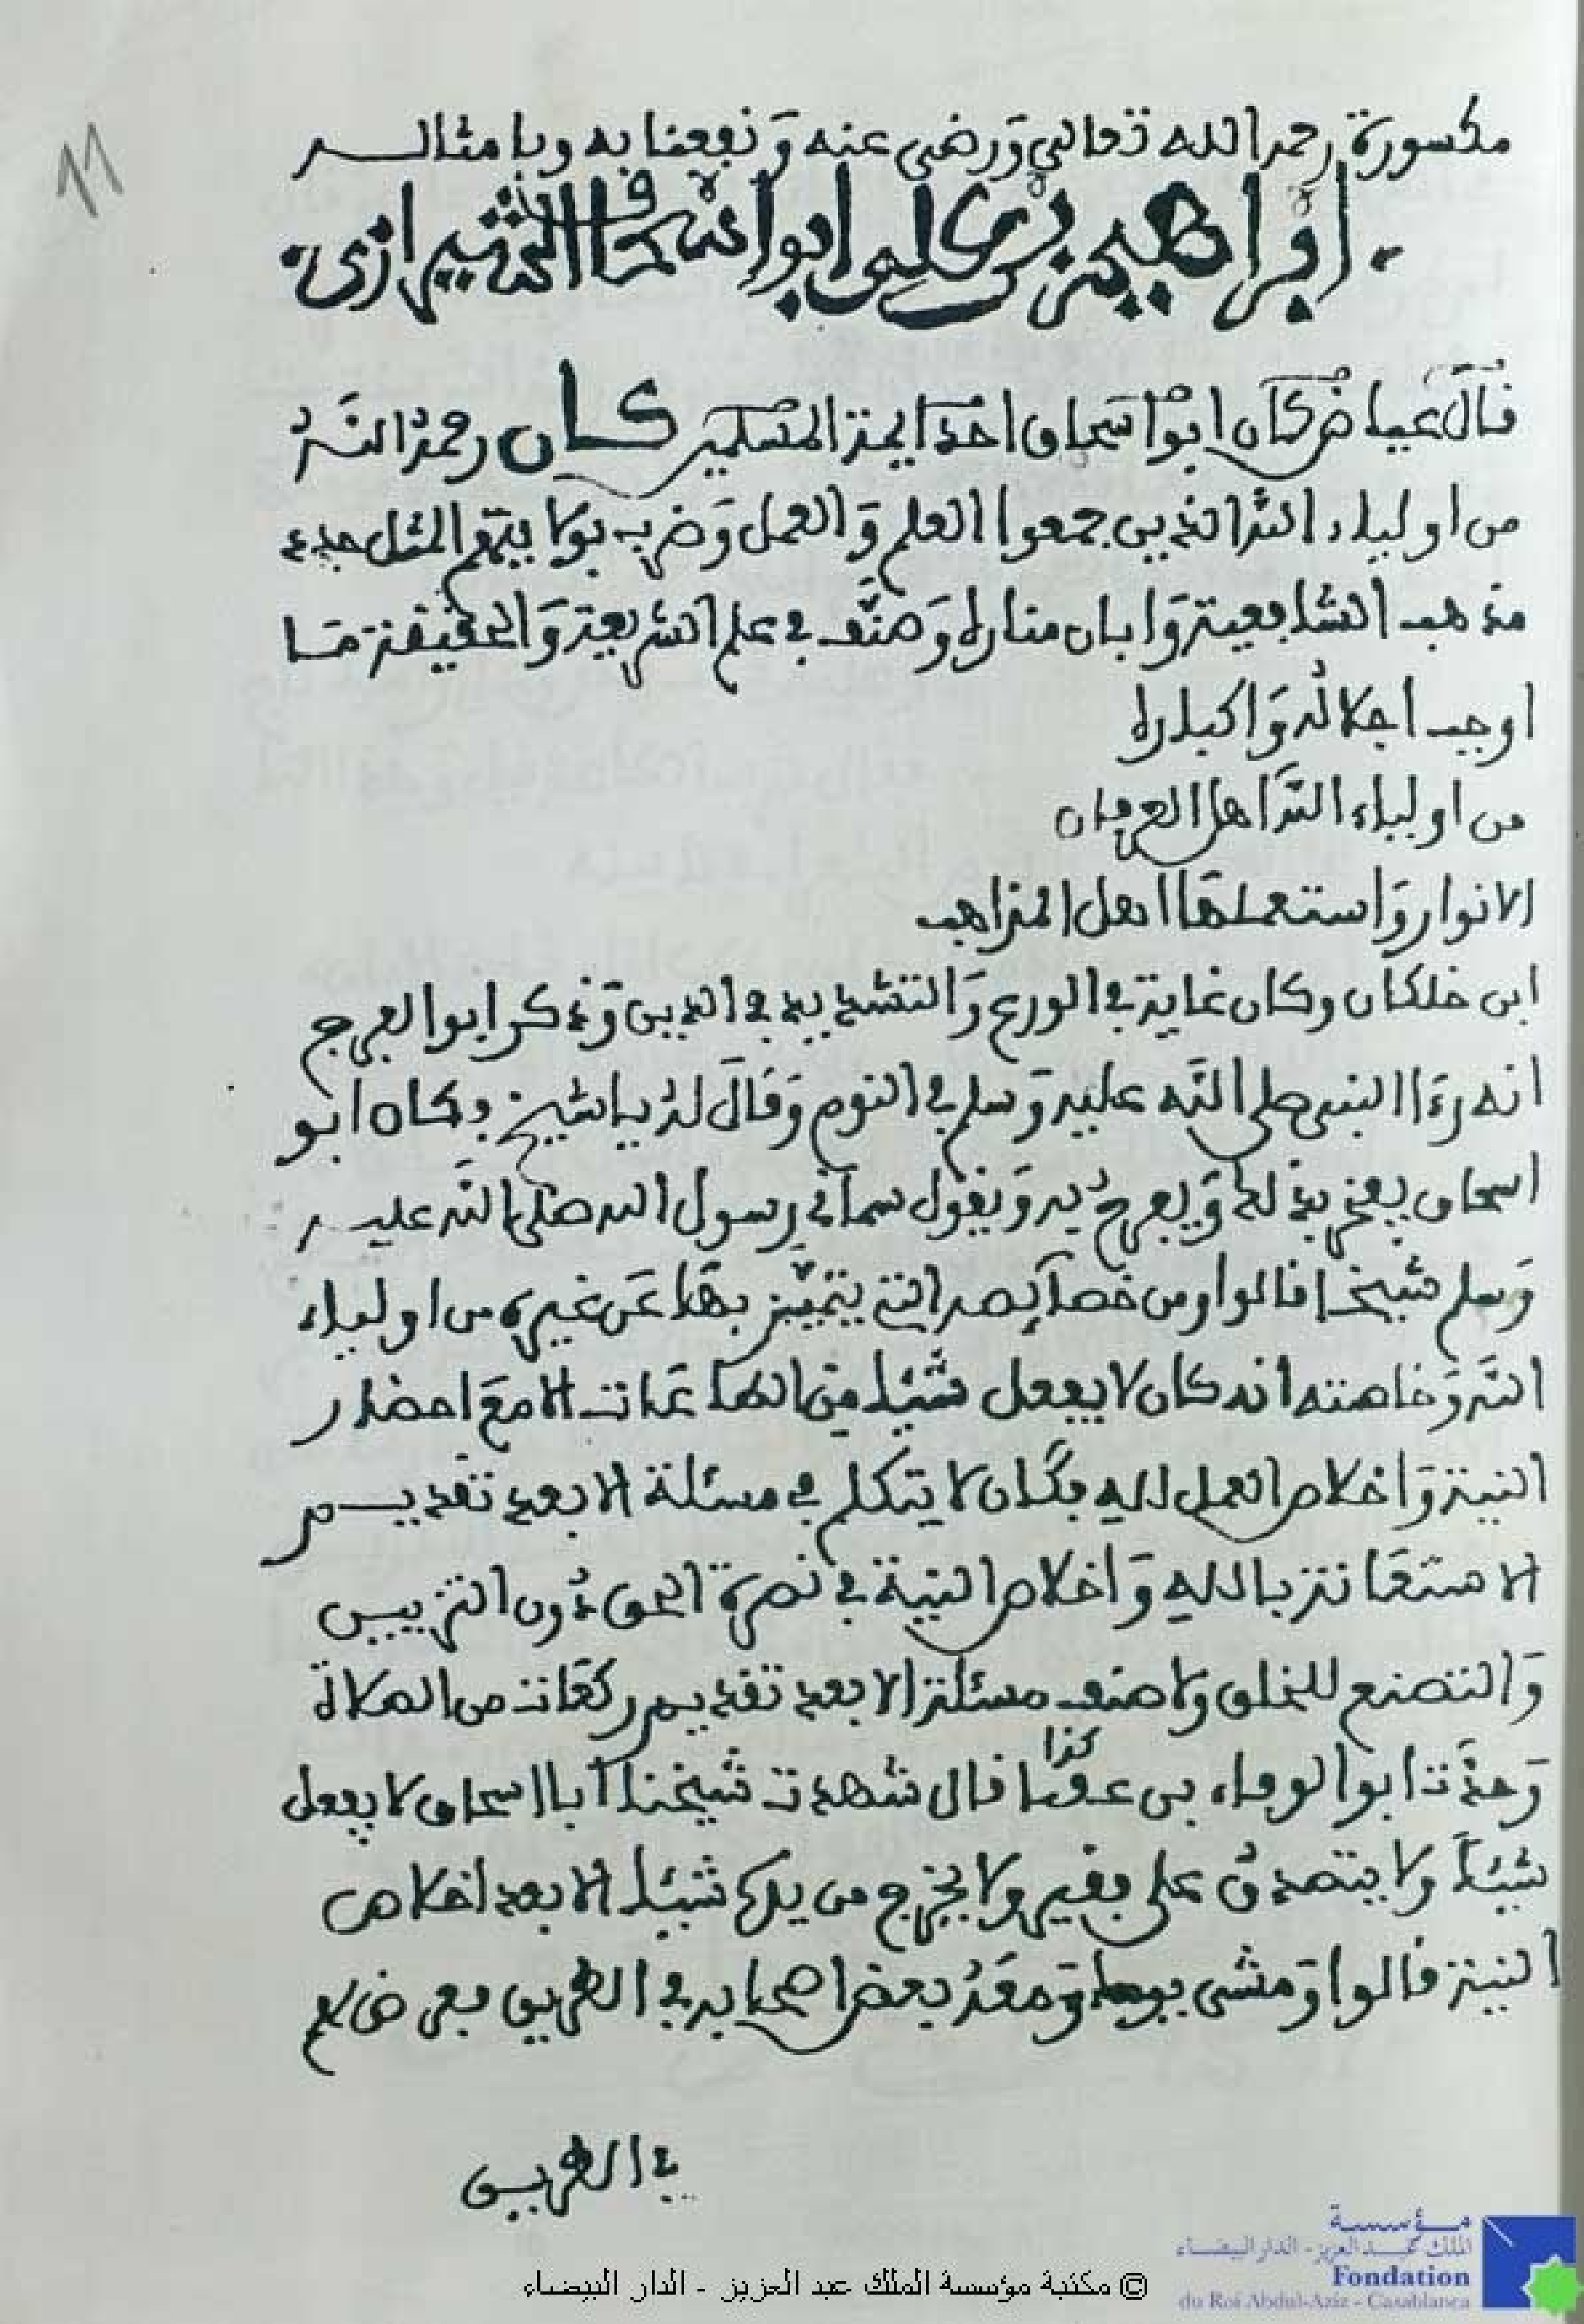 11
مكسورة رحمه الله تعالى وَرضى عنه وَنفعنا به وبامثاله
ابراهيم بن على ابوا اسحاق الشيرازى
قالَ عياض كان ابوا اسحاق احد ايمة المسلمين كان رحمهُ اللهُ
من اولياء الله الذين جمعوا العلم وَالعمل وَضرب به المثل
مذهب الشافعية وَابان مناره وَصنَّف في علم الشريعة وَالحقيقة مَا
اوجب اجلالهُ وَاكباره
من اولياء اللهَ اهل العرفان
الانوار وَاستعملهَا اهل المذاهب
ابن خلكان وكان غاية في الورع وَالتشديد في الدين وَذكر ابوا الفرج
انه رءَا النبى صلى اللَّه عليه وَسلم في النوم وَقالَ لهُ يا شيخ وكان ابو
اسحاق يفخر بذلك وَيفرحُ به وَيقول سمانى رسول الله صلى اللَّه عليه
وَسلم شيخا قالوا ومن خصآئصه التى يتميَّز بهَا عَن غيره من اولياء
اللَّه وَخاصته انه كان لا يفعل شيئا من الطاعَات الا معَ احضار
النية وَاخلاص العمل لله فكَان لا يتكلم في مسئلة الا بعد تقديم
الاستعَانة بالله وَاخلاص النية في نصرة الحق دُون التزيين
وَالتصنع للخلق ولا صنف مسئلة الا بعد تقديم ركعَات من الصلاة
كذا
وَحدَّث ابوا الوفاء بن عقبا قال شهدت شيخنا أبا اسحاق لا يفعل
شيئاً ولا يتصدق على فقير ولا يخرج من يده شيئا الا بعد اخلاص
النية قالوا وَمشى يوما وَمعَهُ بعض اصحابه في الطريق فعرض لهم
في الطريق
مؤسسة
الملك عبد العزيز - الدار البيضاء
Fondation
du Roi Abdul-Aziz - Casablanca
© مكتبة مؤسسة الملك عبد العزيز - الدار البيضاء